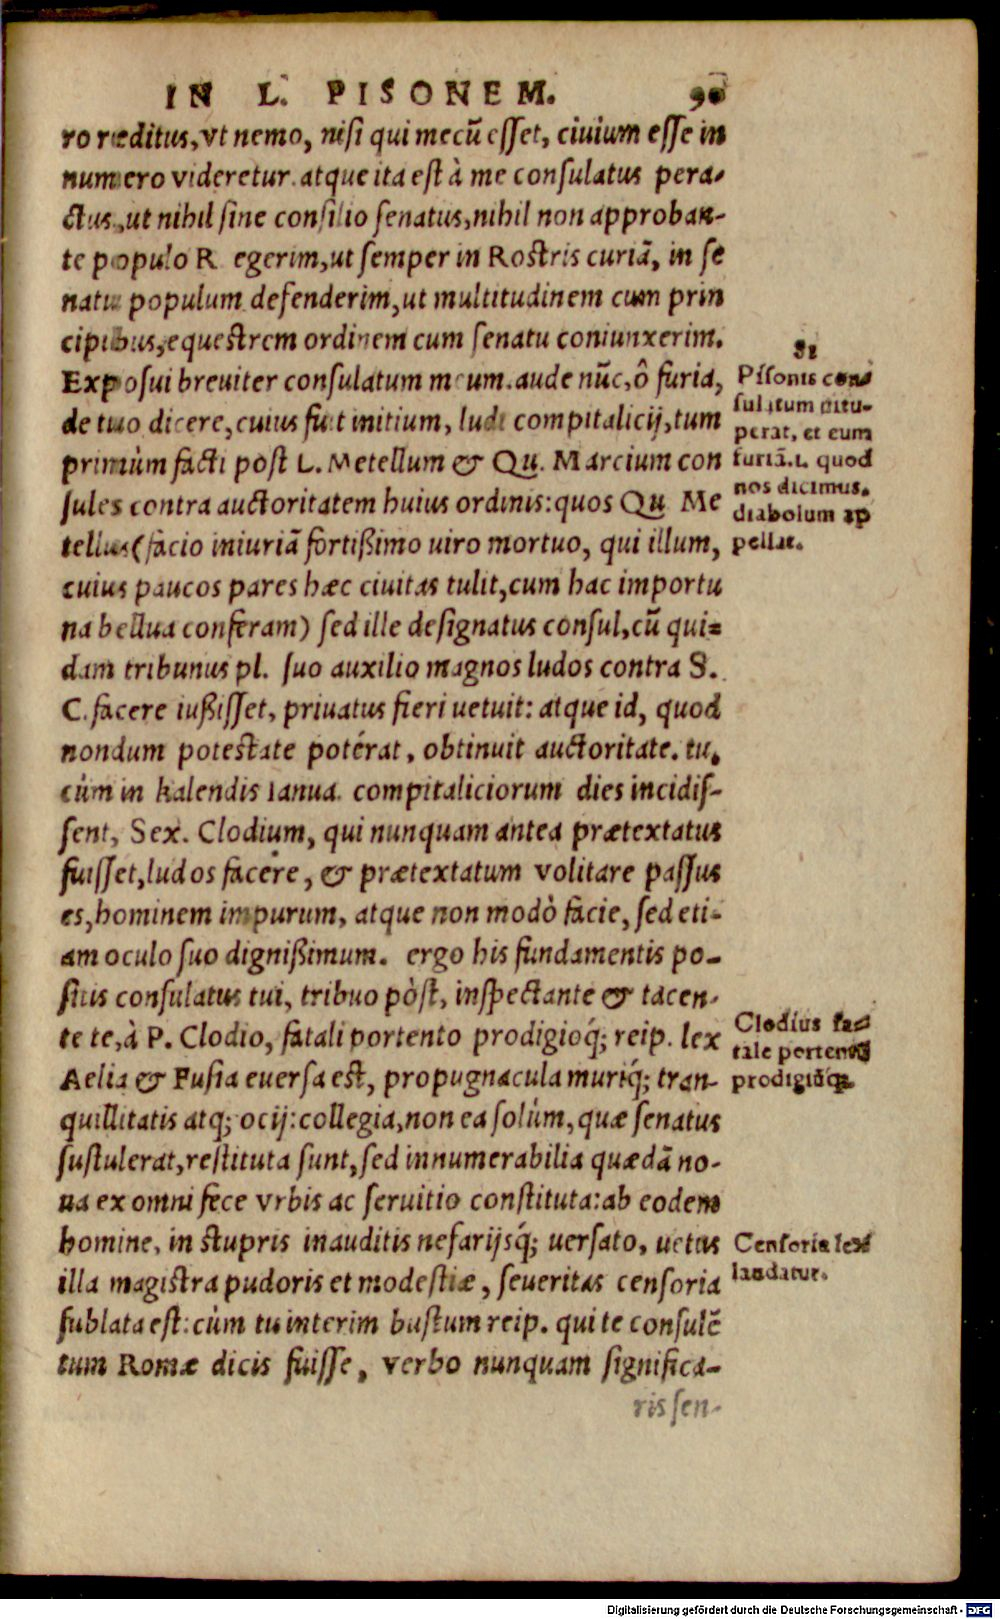 IN L. PISONEM. 90
ro reditus, vt nemo, nisi qui mecū esset, ciuium esse in
numero videretur. atque ita est à me consulatus pera-
ctus, ut nihil sine consilio senatus, nihil non approban-
te populo R egerim, ut semper in Rostris curiā, in se
natu populum defenderim, ut multitudinem cum prin
cipibus, equestrem ordinem cum senatu coniunxerim.
Exposui breuiter consulatum meum. aude nūc, ô furia,
de tuo dicere, cuius fuit initium, ludi compitalicij, tum
primùm facti post L. Metellum & Qu. Marcium con
sules contra auctoritatem huius ordinis: quos Qu Me
tellus (facio iniuriā fortißimo uiro mortuo, qui illum,
cuius paucos pares hæc ciuitas tulit, cum hac importu
na bellua conferam) sed ille designatus consul, cū qui=
dam tribunus pl. suo auxilio magnos ludos contra S.
C. facere iußisset, priuatus fieri uetuit: atque id, quod
nondum potestate potérat, obtinuit auctoritate. tu,
cùm in kalendis Ianua. compitaliciorum dies incidis-
sent, Sex. Clodium, qui nunquam antea prætextatus
fuisset, ludos facere, & prætextatum volitare passus
es, hominem impurum, atque non modò facie, sed eti-
am oculo suo dignißimum. ergo his fundamentis po-
sitis consulatus tui, triduo pòst, inspectante & tacen-
te te, à P. Clodio, fatali portento prodigioq́; reip. lex
Aelia & Fusia euersa est, propugnacula muriq́; tran-
quillitatis atq; ocij: collegia, non ea solùm, quæ senatus
sustulerat, restituta sunt, sed innumerabilia quædā no-
ua ex omni fece vrbis ac seruitio constituta: ab eodem
homine, in stupris inauditis nefarijsq́; uersato, uetus
illa magistra pudoris et modestiæ, seueritas censoria
sublata est: cùm tu interim bustum reip. qui te consulē
tum Romæ dicis fuisse, verbo nunquam significa-
ris sen-
81
Pisonis con=
sulatum uitu-
perat, et eum
furiā. L. quod
nos dicimus.
diabolum ap
pellat.
Clodius fa=
tale portentū
prodigiūq;.
Censoria lex
laudatur.
Digitalisierung gefördert durch die Deutsche Forschungsgemeinschaft - DFG